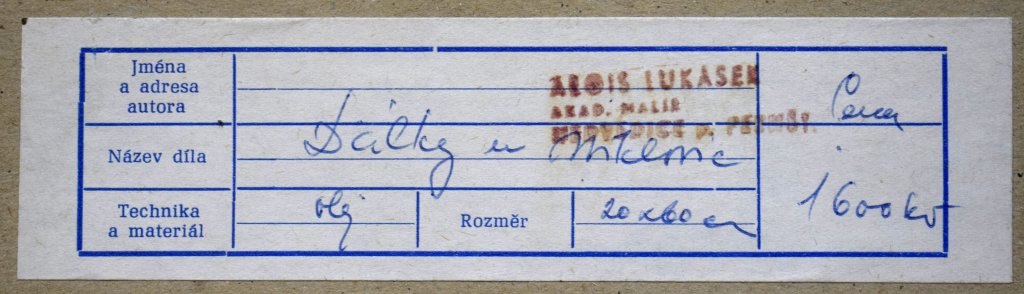 Jména
a adresa
autora
ALOIS LUKÁŠEK
AKAD. MALÍŘ
MEDVĚDICE P. PERNŠT.
Cena
Název díla
Dálky u Miklovic
1600 kčs
Technika
a materiál
olej
Rozměr
20x60 cm